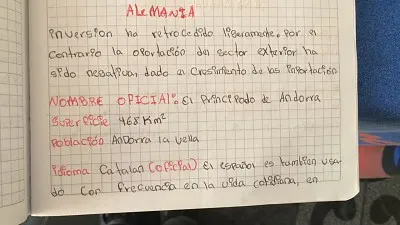 ALEMANIA
inversion ha retrocedido ligeramente. por el
contrario la oportación del sector exterior ha
sido negativa, dado al Crosimiento de las inportación
NOMBRE OFICIAL: El Principado de Andorra
Superficie 468 Km²
población Andorra la vella
idioma Catalan (oficial) El español es tambien usa-
do con frecuencia en la vida cotidiana, en